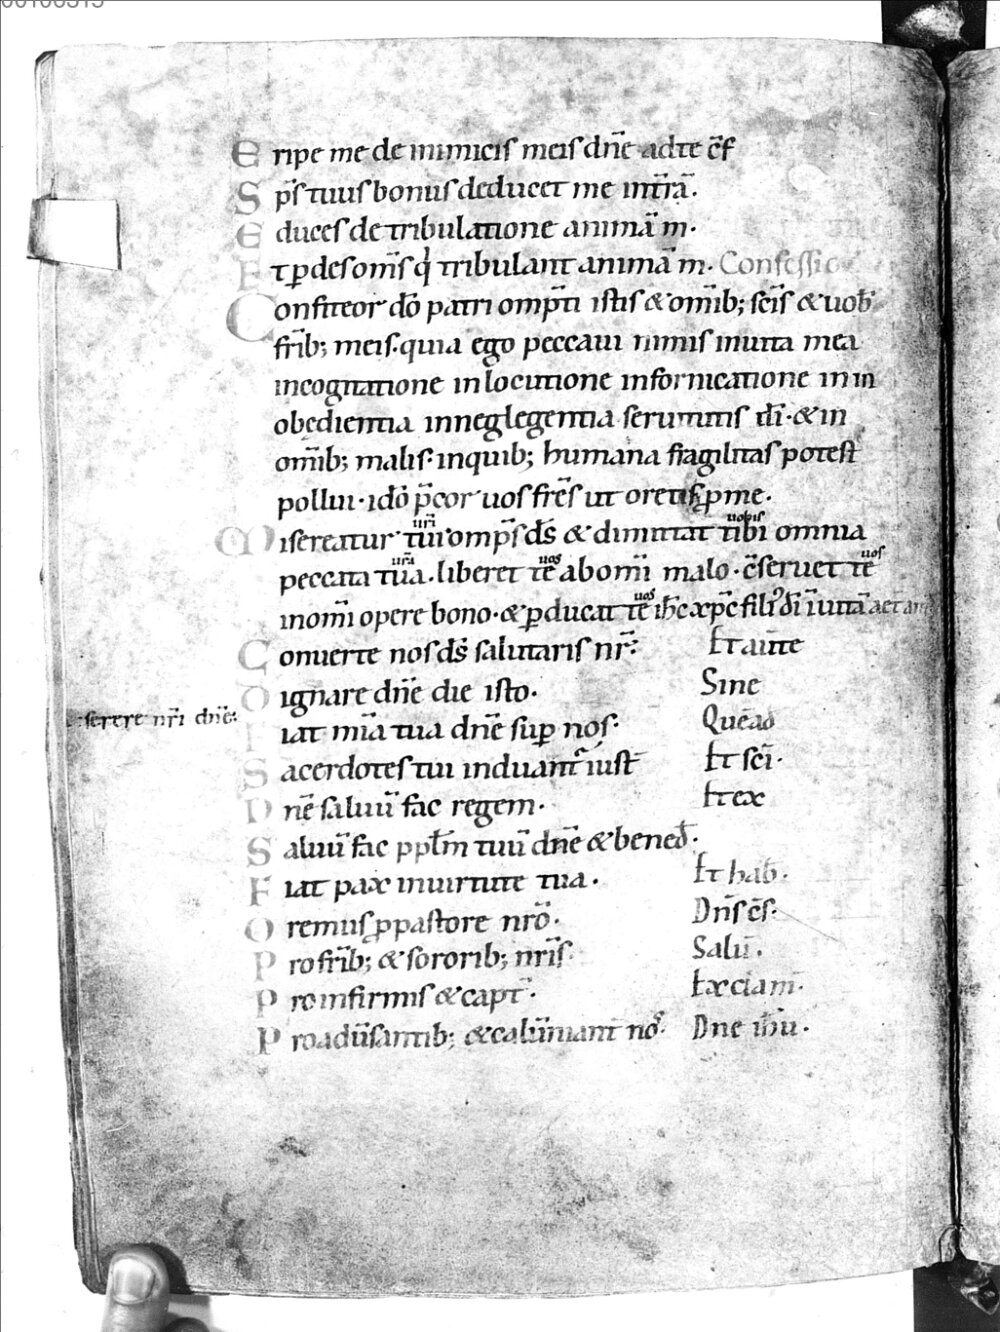 Eripe me de inimicis meis dñe adte c̄f
Sp̄s tuus bonus deducet me int̄rā.
Educes de tribulatione animā m.
Et ꝑdes om̄s q̇ tribulant animā m. Confessio
Confiteor dō patri omp̄ti istis & om̄ib; sc̄is & uob̄
fr̄ib; meis. quia ego peccaui nimis inuita mea
incogitatione inlocutione infornicatione inin
obedientia inneglegentia seruitutis dī. & in
om̄ib; malis. inquib; humana fragilitas potest
pollui. idō p̄cor uos fr̄es ut oretis ꝓme.
ur̄i uobis
Misereatur tui omp̄s d̄s & dimittat tibi omnia
ur̄a uos uos
peccata tua. liberet te abom̄i malo. c̄seruet te
uos
inom̄i opere bono. & ꝑducat te ih̄c xp̄c filī dī inuitā aet
Conuerte nos d̄s salutaris nr̄. Et aūte
Dignare dñe die isto. Sine
serere nr̄i dñe.
Fiat mīa tua dñe sup̄ nos. Quēad
Sacerdotes tui induant iust̄ Et sc̄i.
Dñe saluū fac regem. Et ex
Saluū fac pp̄lm tuū dñe & bened̄.
Fiat pax inuirtute tua. Et hab̄.
Oremus ꝓpastore nrō. Dn̄s c̄s.
Pro fr̄ib; & sororib; nr̄is. Saluī.
Pro infirmis & capt̄. Ex ciam̄.
Pro aduersantib; & calūniant nos̄. Dne ih̄u.